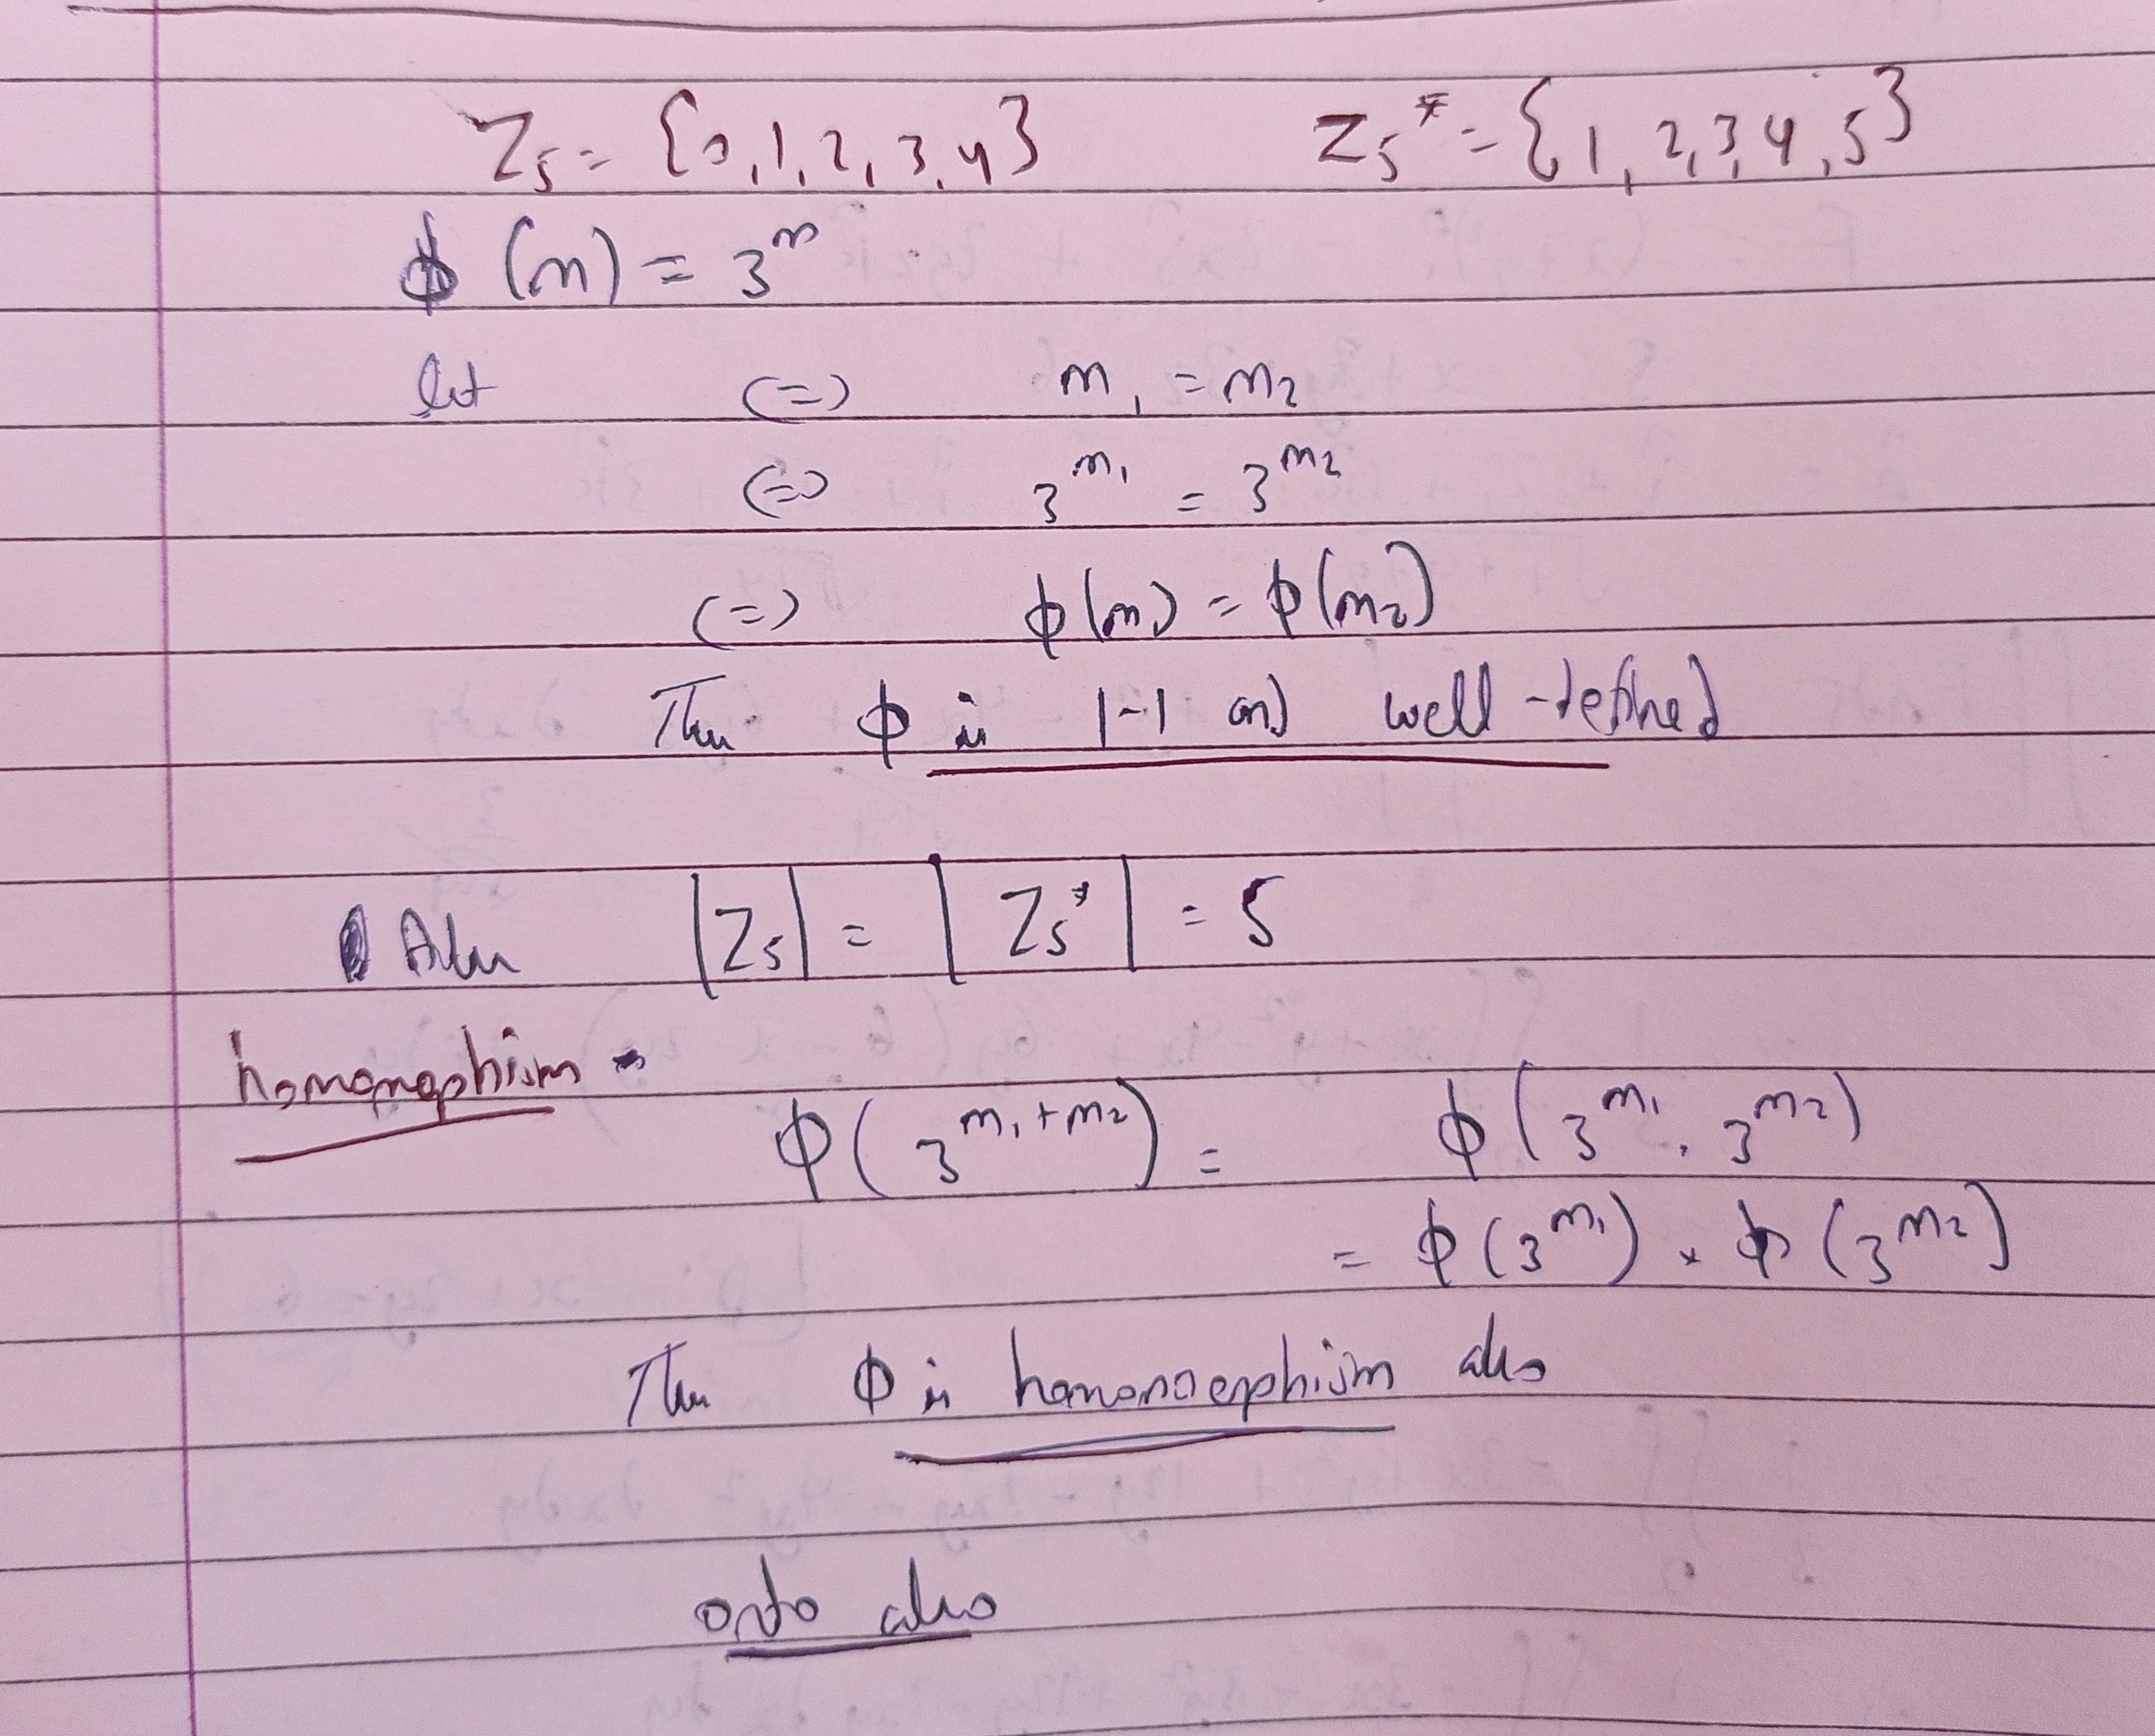 Z₅ = {0, 1, 2, 3, 4} Z₅* = {1, 2, 3, 4, 5}
ϕ (m) = 3^m
let (=) m₁ = m₂
(=) 3^m₁ = 3^m₂
(=) ϕ(m₁) = ϕ(m₂)
Then ϕ is 1-1 and well-defined
Also |Z₅| = |Z₅*| = 5
homomorphism -
ϕ(3^(m₁+m₂)) = ϕ(3^m₁ . 3^m₂)
= ϕ(3^m₁) * ϕ(3^m₂)
Then ϕ is homomorphism also
onto also